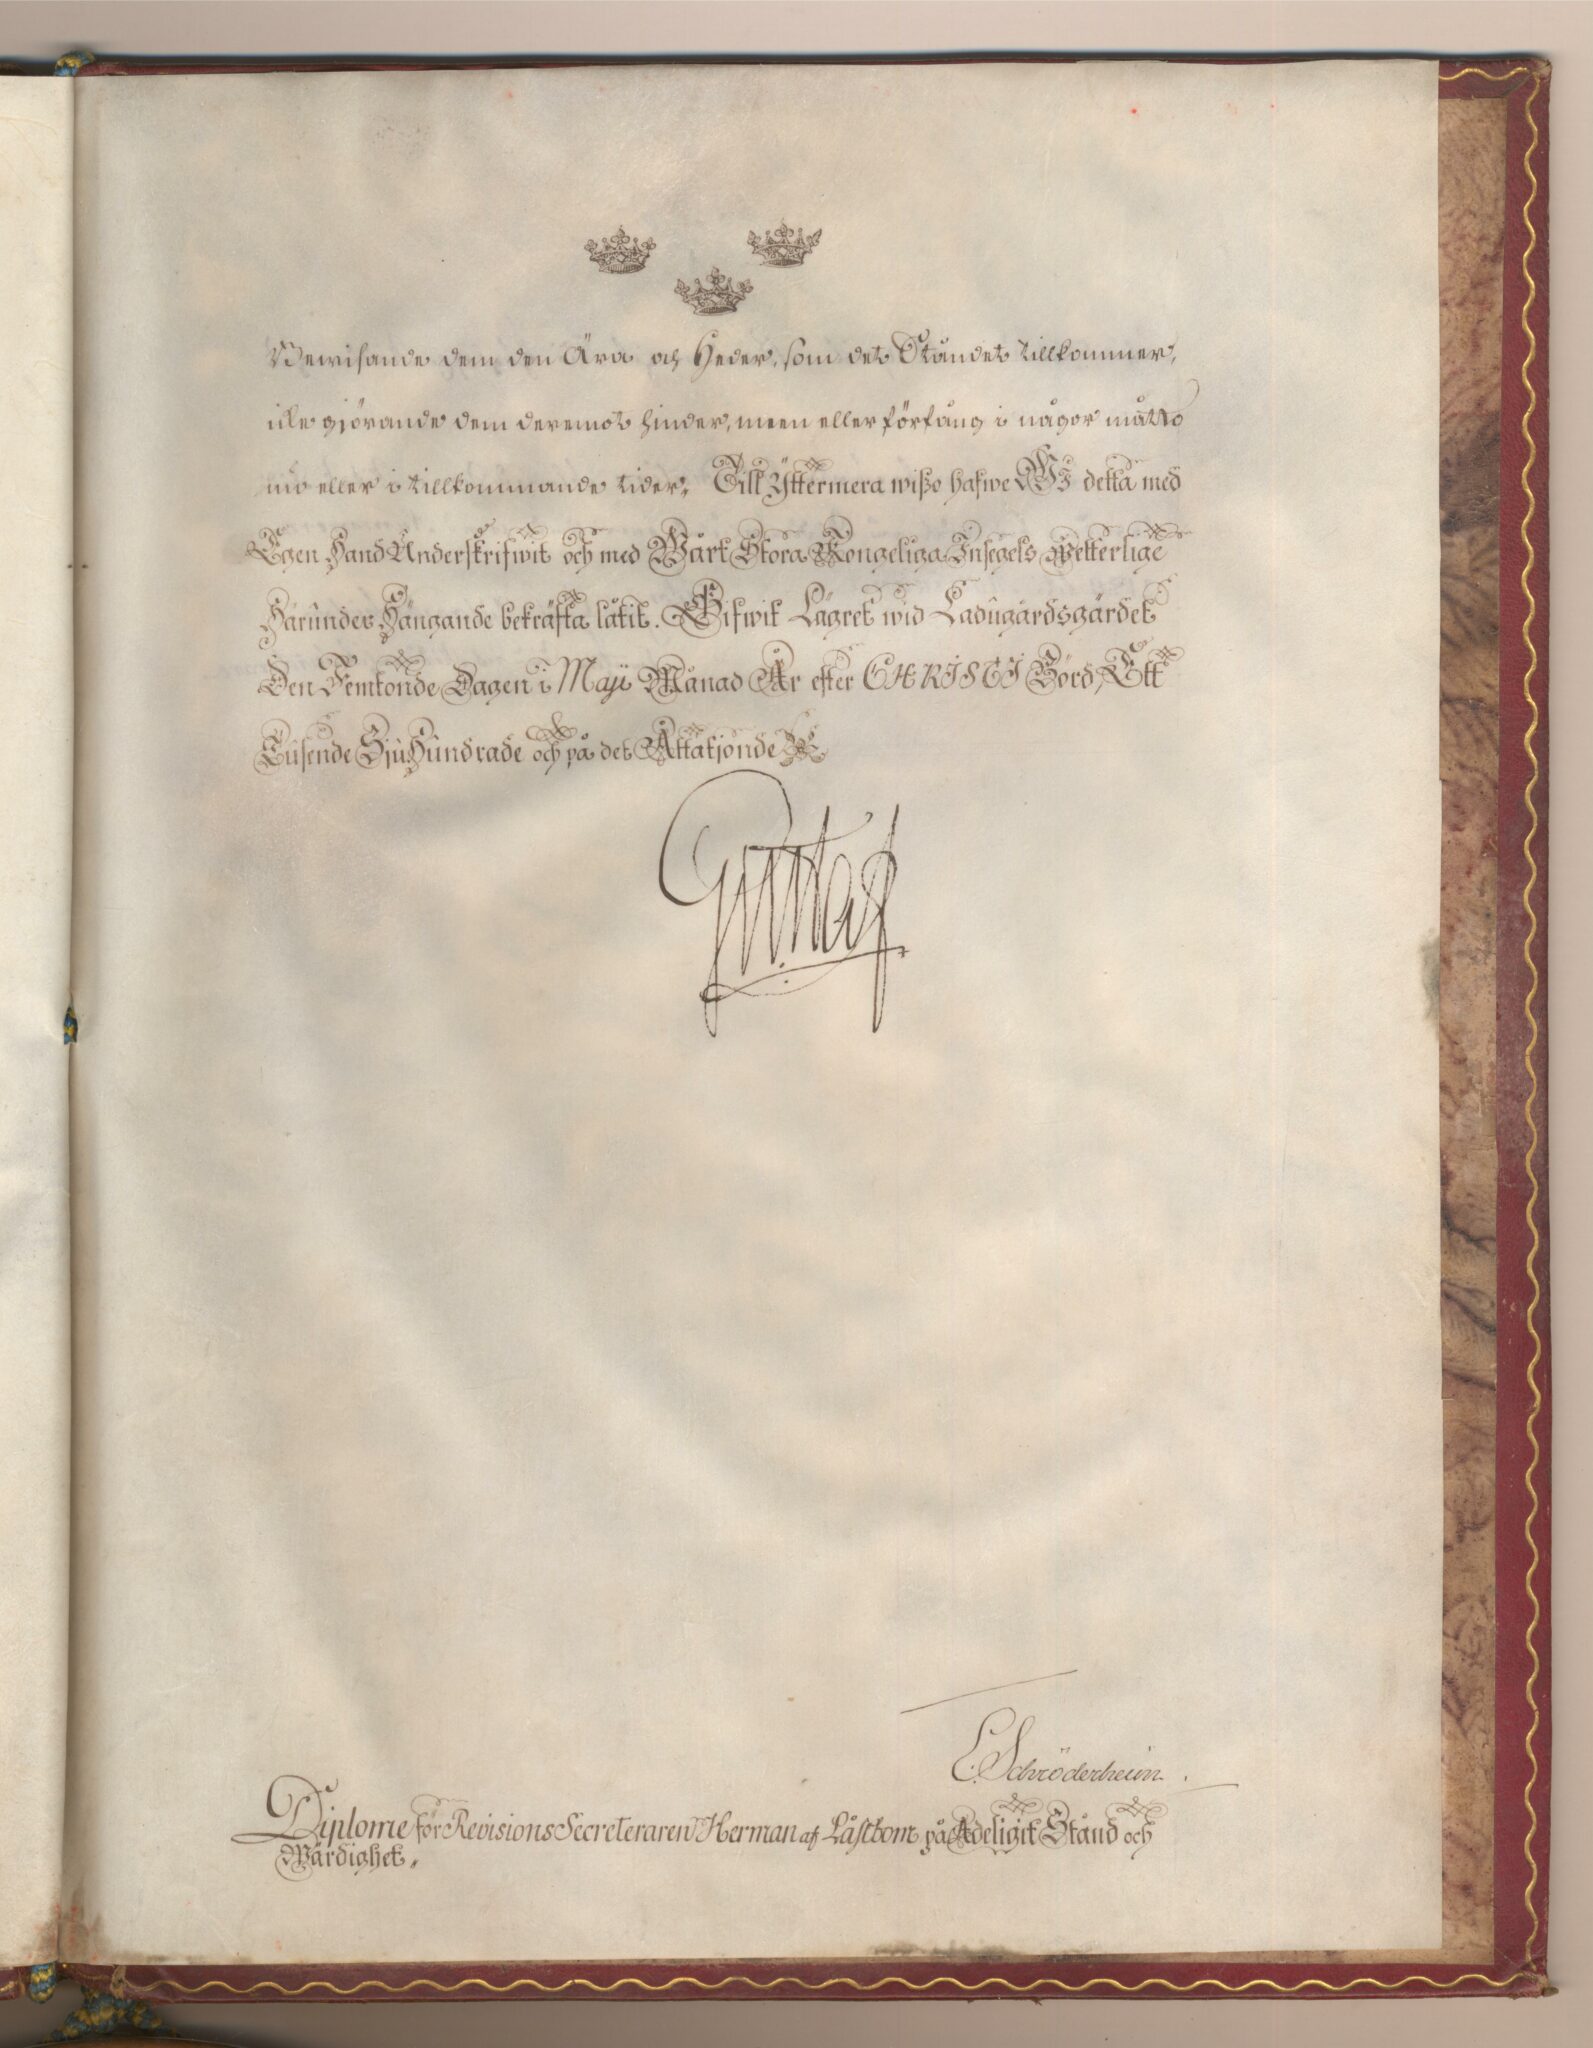 Bewisande dem den Ära och Heder, som det Ståndet tillkommer,
icke giörande dem deremot hinder, meen eller förfång i någor måtto
nu eller i tillkommande tider. Till Yttermera wißo hafwe Wi detta med
Egen Hand Underskrifwit och med Wårt Stora Kongeliga Insegels Wetterlige
Härunder Hängande bekräfta låtit. Gifwit Lägret wid Ladugårdsgärdet
Den Femtonde Dagen i Maji Månad År efter CHRISTI Börd, Ett
Tusende Sju Hundrade och på det Åttationde
Gustaf
E. Schröderheim.
Diplome för Revisions Secreteraren Herman af Låstbom på Adeligit Stånd och
Wärdighet.